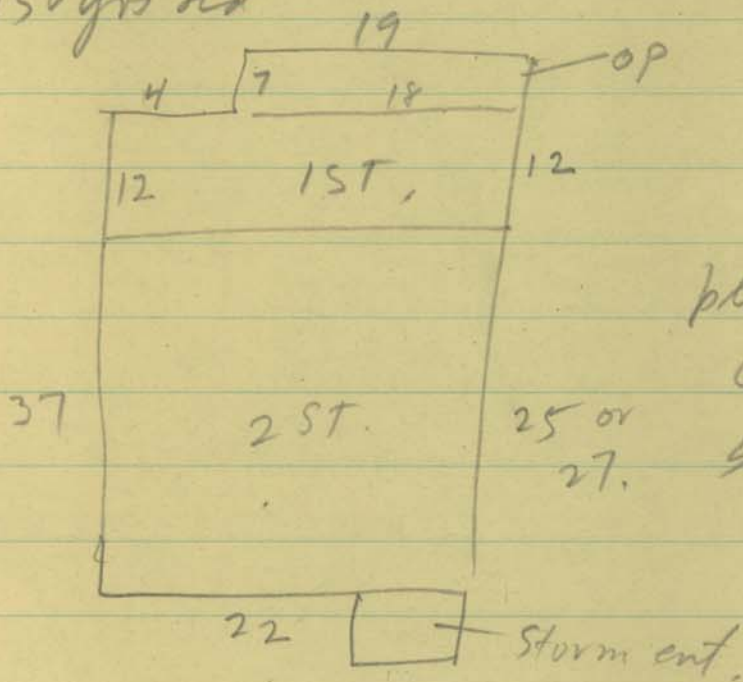 19
OP
4 7 18
12 1 ST. 12
37 2 ST. 25 or
27.
22 Storm ent.